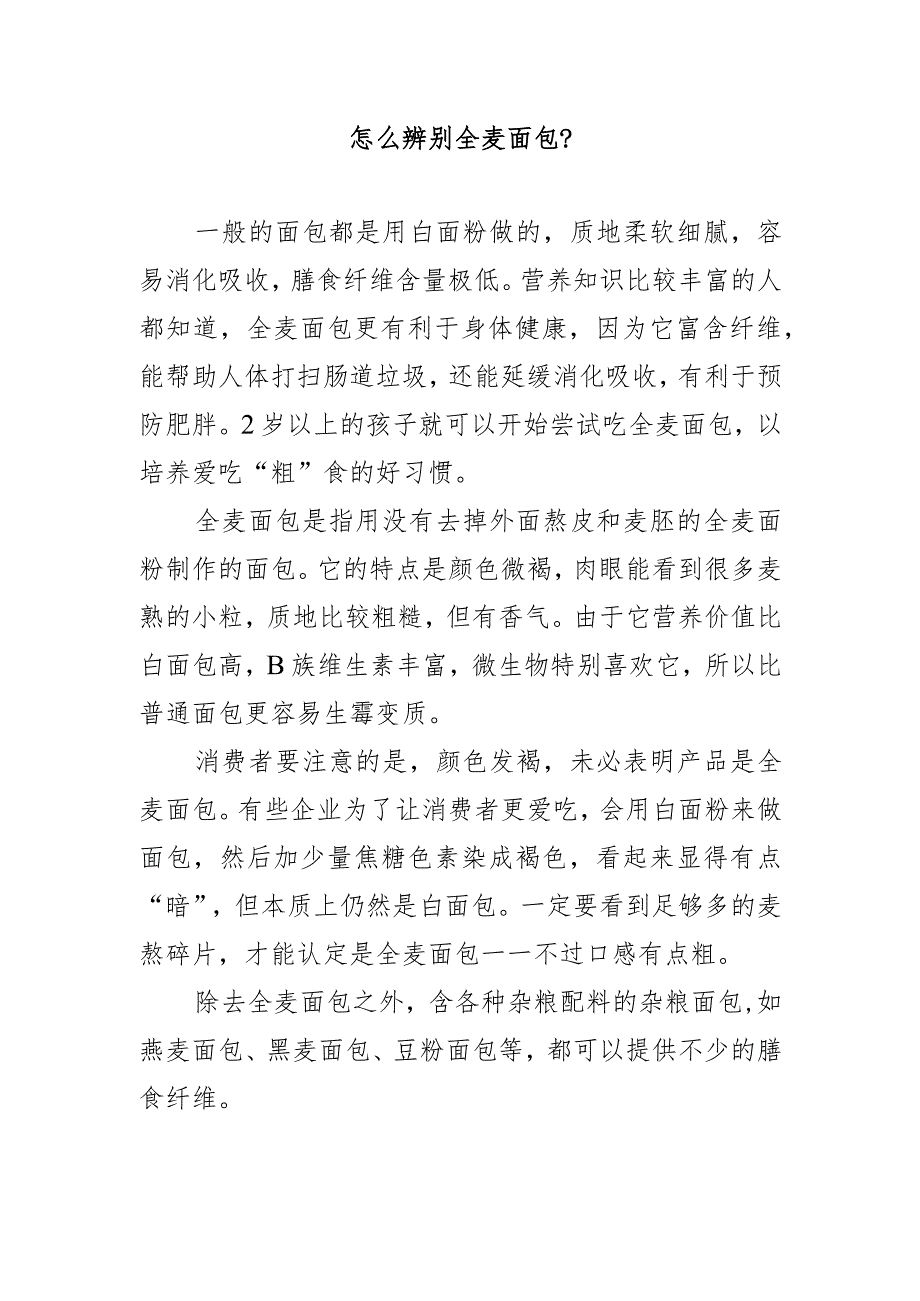 怎么辨别全麦面包?
一般的面包都是用白面粉做的，质地柔软细腻，容
易消化吸收，膳食纤维含量极低。营养知识比较丰富的人
都知道，全麦面包更有利于身体健康，因为它富含纤维，
能帮助人体打扫肠道垃圾，还能延缓消化吸收，有利于预
防肥胖。2 岁以上的孩子就可以开始尝试吃全麦面包，以
培养爱吃“粗”食的好习惯。
全麦面包是指用没有去掉外面熬皮和麦胚的全麦面
粉制作的面包。它的特点是颜色微褐，肉眼能看到很多麦
熟的小粒，质地比较粗糙，但有香气。由于它营养价值比
白面包高，B 族维生素丰富，微生物特别喜欢它，所以比
普通面包更容易生霉变质。
消费者要注意的是，颜色发褐，未必表明产品是全
麦面包。有些企业为了让消费者更爱吃，会用白面粉来做
面包，然后加少量焦糖色素染成褐色，看起来显得有点
“暗”，但本质上仍然是白面包。一定要看到足够多的麦
熬碎片，才能认定是全麦面包一一不过口感有点粗。
除去全麦面包之外，含各种杂粮配料的杂粮面包,如
燕麦面包、黑麦面包、豆粉面包等，都可以提供不少的膳
食纤维。